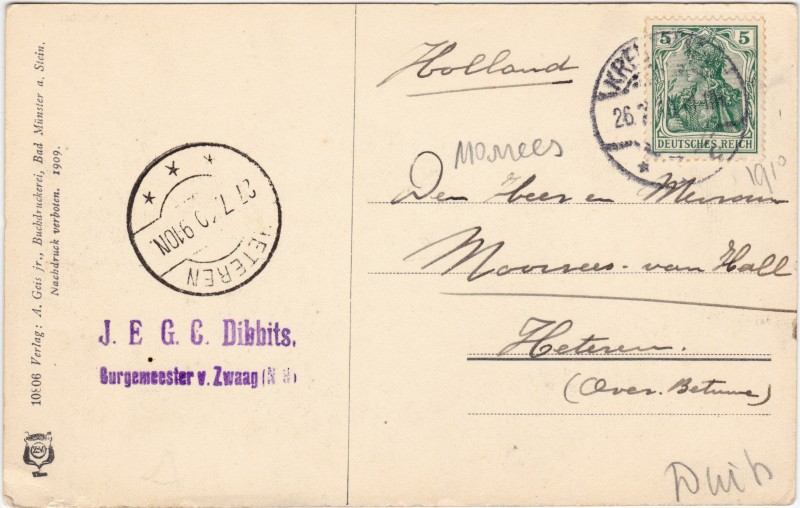 10806 Verlag: A. Geis jr., Buchdruckerei, Bad Münster a. Stein.
Nachdruck verboten. 1909.
HETEREN
27.7.10 9-10N.
J. E G. C. Dibbits,
Burgemeester v. Zwaag (N H)
Holland
5 5
DEUTSCHES REICH
KRE
26.7
1910
Morrees
Den Heer en Mevrouw
Moorrees-van Hall
Heteren.
(Over-Betuwe)
Duits